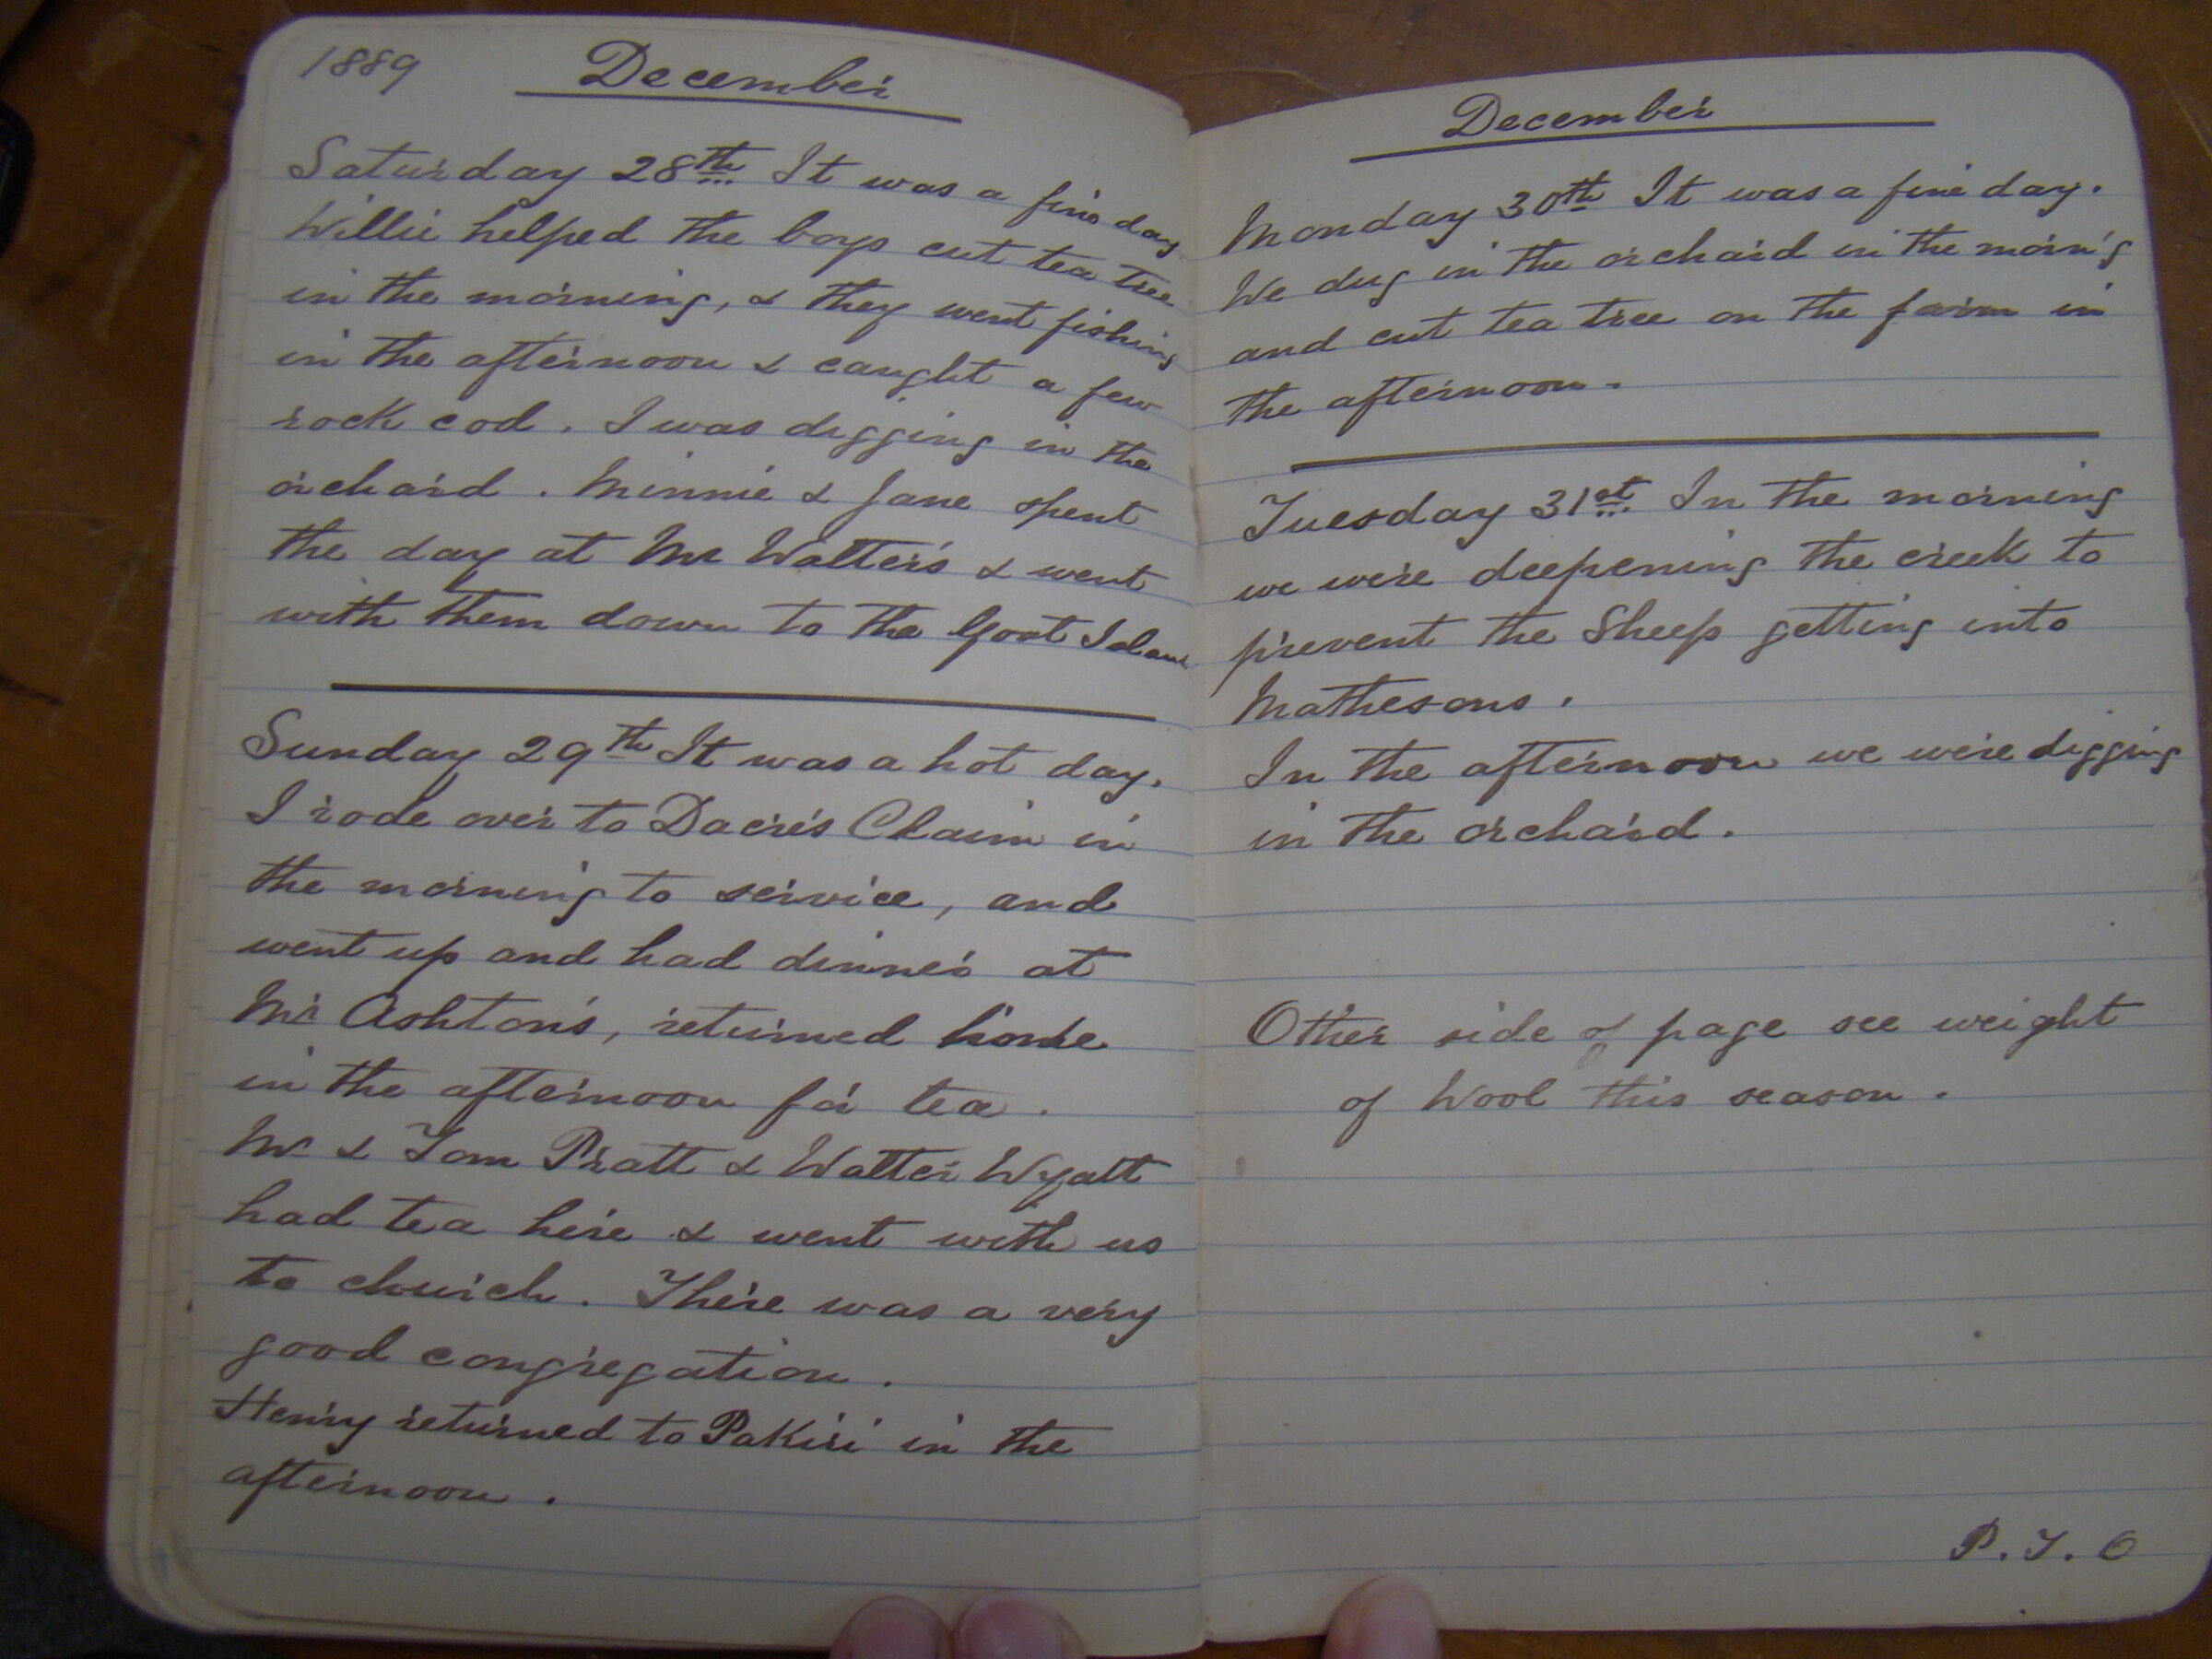 1889 December
Saturday 28th It was a fine day
Willie helped the boys cut tea tree
in the morning, & they went fishing
in the afternoon & caught a few
rock cod. I was digging in the
orchard. Minnie & Jane spent
the day at Mr Walters & went
with them down to the Goat Island
Sunday 29th It was a hot day.
I rode over to Dacre's Claim in
the morning to service, and
went up and had dinner at
Mr Ashton's, returned home
in the afternoon for tea.
Mr & Tom Pratt & Walter Wyatt
had tea here & went with us
to church. There was a very
good congregation.
Henry returned to Pakiri in the
afternoon.
December
Monday 30th It was a fine day.
We dug in the orchard in the morn'g
and cut tea tree on the farm in
the afternoon.
Tuesday 31st In the morning
we were deepening the creek to
prevent the Sheep getting into
Mathesons.
In the afternoon we were digging
in the orchard.
Other side of page see weight
of Wool this season.
P.T.O